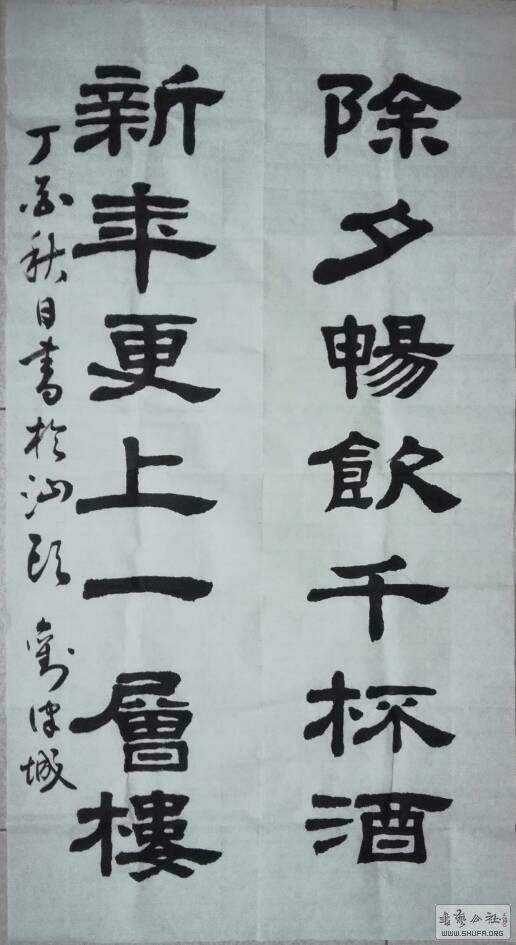 除夕暢飲千杯酒
新年更上一層樓
丁酉秋日書於汕頭 劉澤城
書藝公社
WWW.SHUFA.ORG